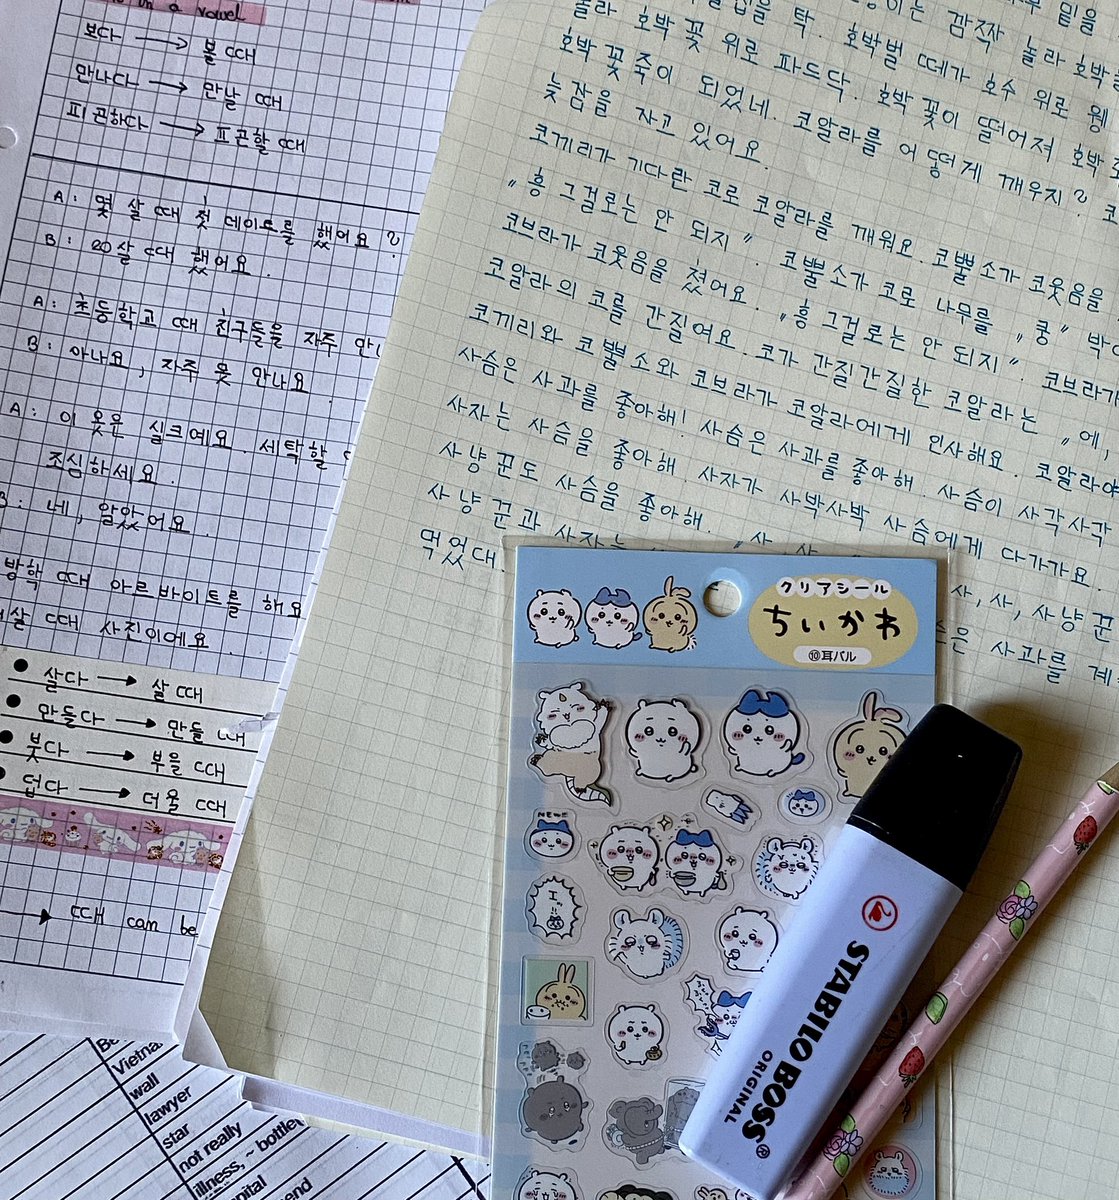 in a vowel
보다 → 볼 때
만나다 → 만날 때
피곤하다 → 피곤할 때
A: 몇 살 때 첫 데이트를 했어요?
B: 20살 때 했어요.
A: 초등학교 때 친구들을 자주
B: 아니요, 자주 못 만나요
A: 이 옷은 실크예요. 세탁할
조심하세요.
B: 네, 알았어요.
때 아르바이트를 해요
살 때 사진이에요.
살다 → 살 때
만들다 → 만들 때
붓다 → 부을 때
덥다 → 더울 때
→ 때 can be
wall
lawyer
star
not really
illness, ~ bottle
탁. 호박벌 떼가 호수 위로 웽
호박 꽃 위로 파드닥. 호박 꽃이 떨어져
호박 꽃 죽이 되었네. 코알라를 어떻게 깨우지?
늦잠을 자고 있어요.
코끼리가 기다란 코로 코알라를 깨워요. 코뿔소가 코웃음을
„흥 그걸로는 안 되지". 코뿔소가 코로 나무를 „쿵"
코브라가 코웃음을 쳤어요. „흥 그걸로는 안 되지". 코브라가
코알라의 코를 간질여요. 코가 간질간질한 코알라는 „에,
코끼리와 코뿔소와 코브라가 코알라에게 인사해요.
사슴은 사과를 좋아해! 사슴은 사과를 좋아해. 사슴이 사각사각
사자는 사슴을 좋아해. 사자가 사박사박 사슴에게 다가가요.
사냥꾼도 사슴을 좋아해.
사냥꾼과 사자는
사, 사, 사냥꾼
먹었대
은 사과를
クリアシール
ちいかわ
⑩耳パル
STABILO BOSS
ORIGINAL